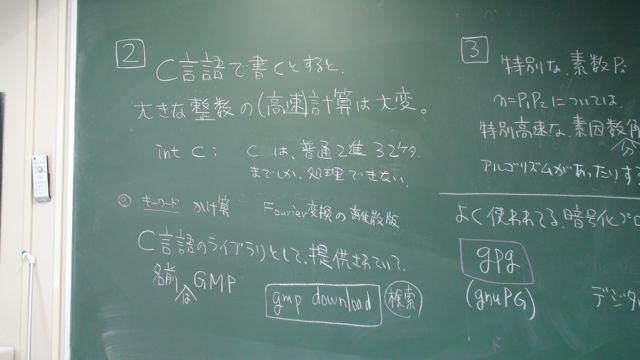 2
C言語で書くとすると、
大きな整数の(高速)計算は大変。
int C ; C は、普通2進 32ケタ
までしか、処理できない。
◎ キーワード かけ算 Fourier変換の離散版
C言語のライブラリとして、提供されていて、
名前は GMP
gmp download 検索
3
特別な、素数P₂
n=P₁P₂については、
特別高速な、素因数分解
アルゴリズムがあったりする
よく使われてる、暗号化プロ
gpg
(gnuPG)
デジタル